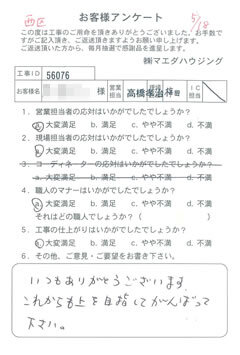 西区
お客様アンケート
5/18
この度は工事のご用命を頂きありがとうございました。お手数で
すがご記入頂き、ご返送頂きますようお願い申し上げます。
ご返送頂いた方から、毎月抽選で感謝品を進呈します。
㈱マエダハウジング
工事ID 56076
お客様名 様 営業担当 高橋 IC担当
1. 営業担当者の応対はいかがでしたでしょうか?
a.大変満足 b.満足 c.やや不満 d.不満
2. 現場担当者の応対はいかがでしたでしょうか?
a.大変満足 b.満足 c.やや不満 d.不満
3. コーディネーターの応対はいかがでしたでしょうか?
a.大変満足 b.満足 c.やや不満 d.不満
4. 職人のマナーはいかがでしたでしょうか?
a.大変満足 b.満足 c.やや不満 d.不満
それはどの職人でしょうか?( )
5. 工事の仕上がりはいかがでしたでしょうか?
a.大変満足 b.満足 c.やや不満 d.不満
6. その他、ご意見・ご要望をお書き下さい。
いつもありがとうございます。
これからも上を目指してがんばって
下さい。